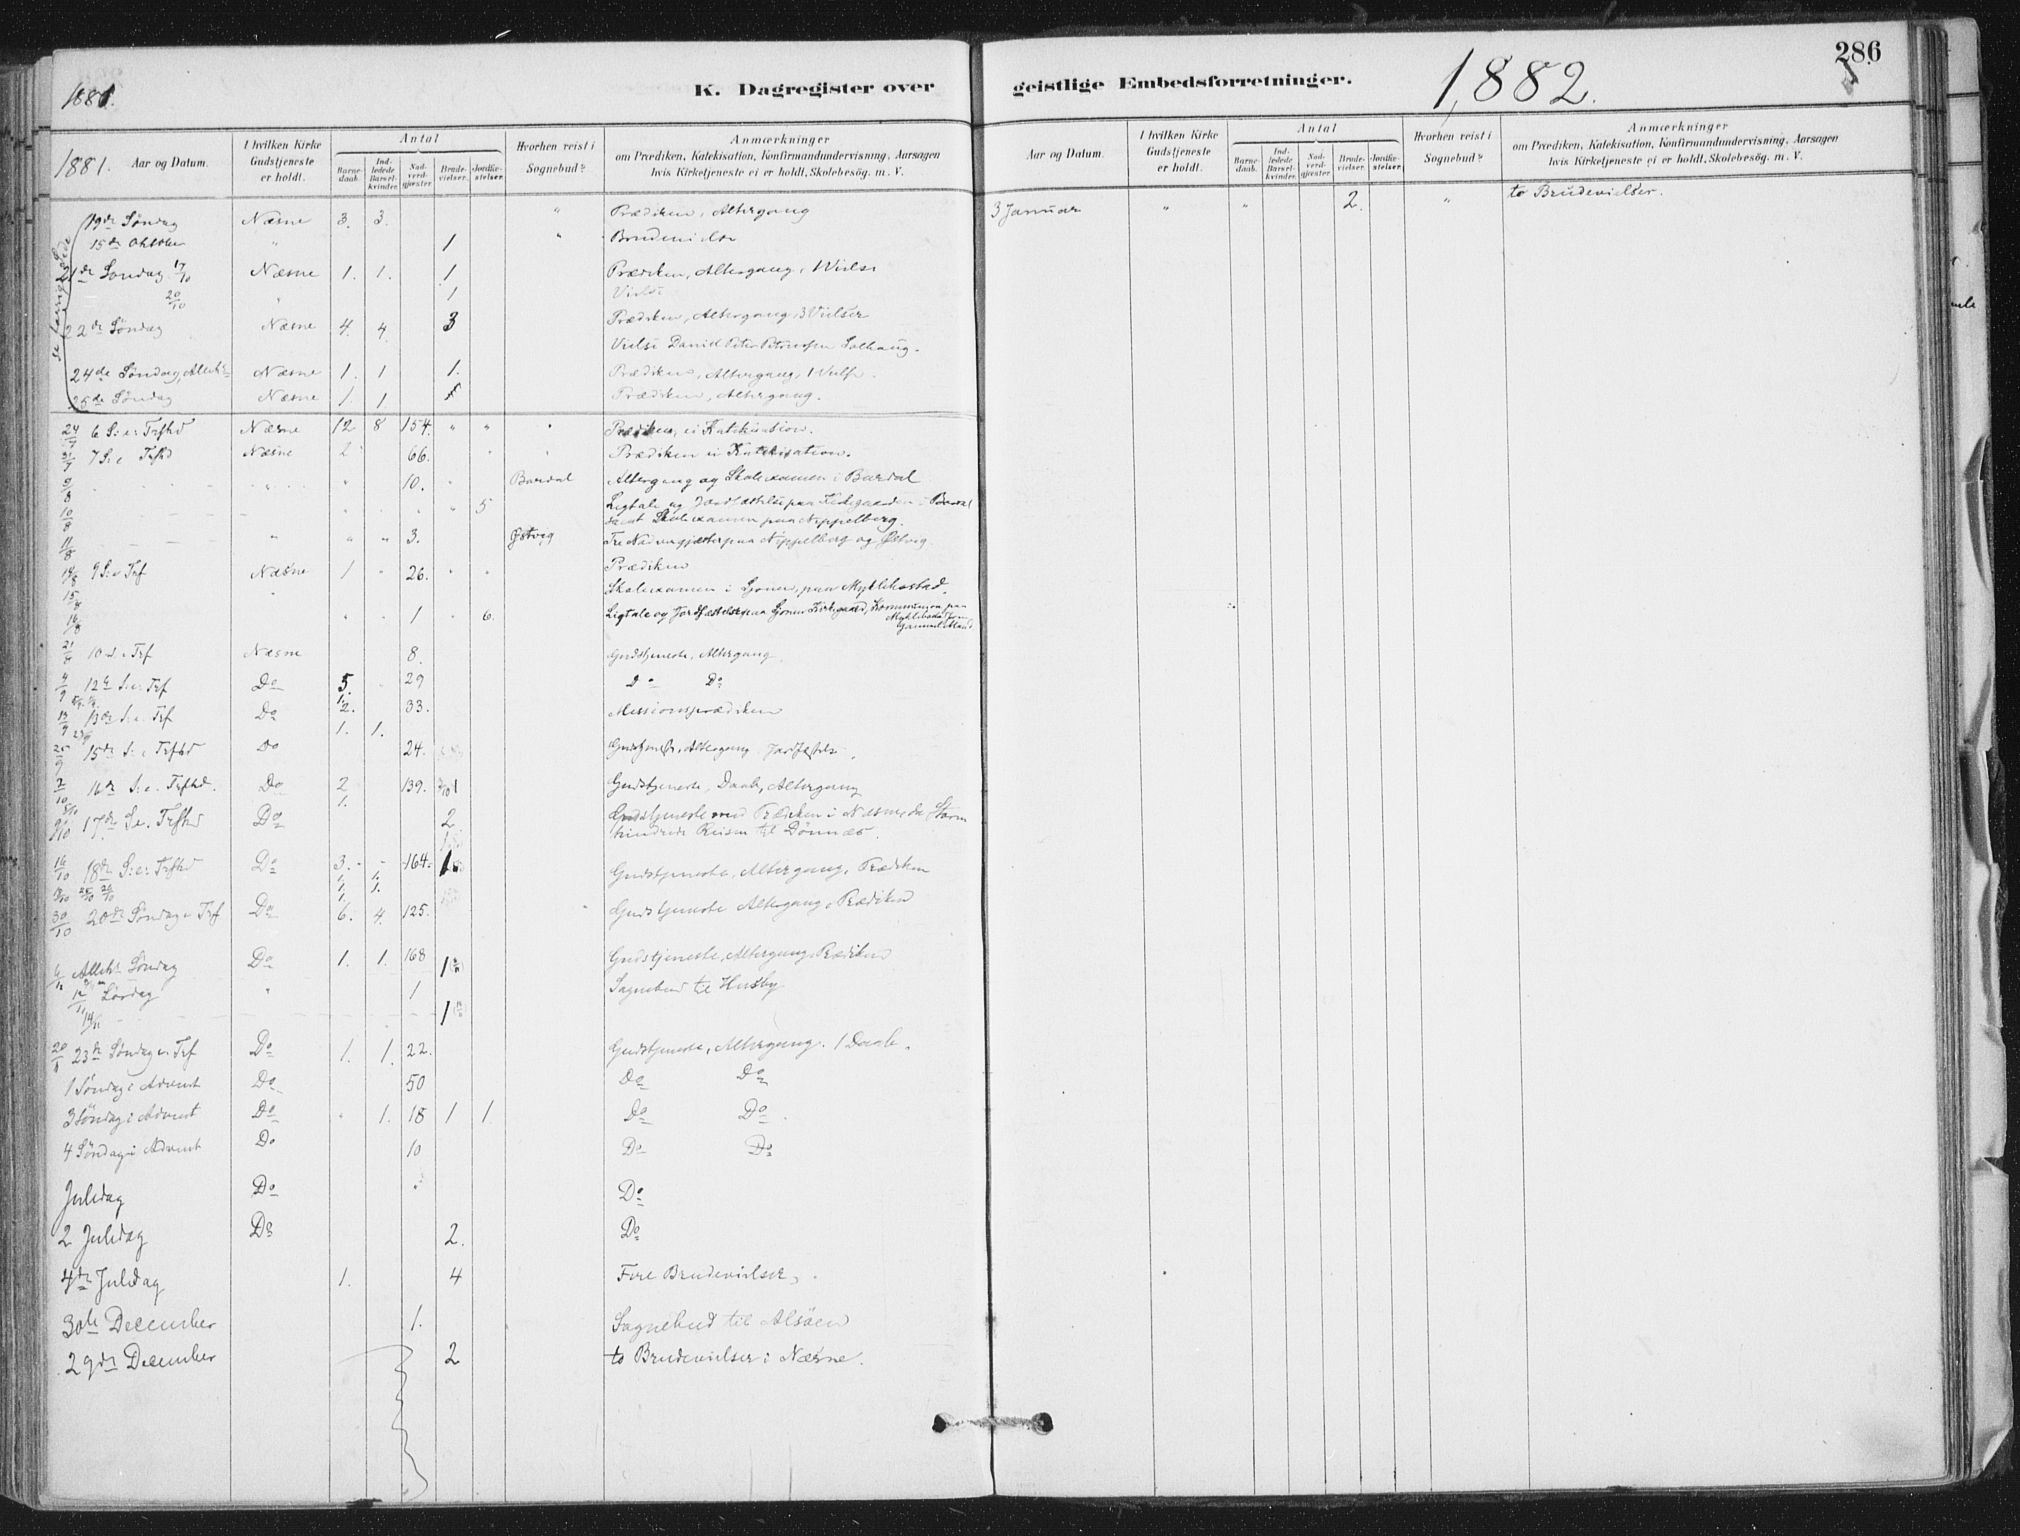 1881.
K. Dagregister over
1881. Aar og Datum.
I hvilken Kirke Gudstjeneste er holdt.
Antal
Barnedaab.
Indledede Barselkvinder.
Nadverdgjester.
Brudevielser.
Jordfæstelser.
Hvorhen reist i Sognebud?
Anmærkninger
om Prædiken, Katekisation, Konfirmandundervisning, Aarsagen
hvis Kirketjeneste ei er holdt, Skolebesøg. m. V.
19de Søndag Næsne 3. 3. " Prædiken, Altergang
15de Oktober " 1 " Brudevielse
21de Søndag 17/10 Næsne 1. 1. 1 Prædiken, Altergang, 1 Vielse
20/10 " 1 Vielse
22de Søndag Næsne 4. 4. 3 Prædiken, Altergang, 3 Vielser
Vielse David Peter Solhaug.
24de Søndag, Næsne 1. 1 1. Prædiken, Altergang, 1 Vielse.
25de Søndag Næsne 1. 1 Prædiken, Altergang.
24/7 6 S: e: Trfhd Næsne 12 8 154. " " " Prædiken, ei Katekisation.
31/7 7 S: e Trfhd Næsne 2 66. " " Prædiken ei Katekisation.
9/8 " " 10. " Bardal Altergang og Skolexamen i Bardal
10/8 " " " " 5 Ligtale og paa i
samt Skolexamen paa Nippelberg.
11/8 " " " 3. Østvig Tre Nadvergjæster paa Nippelberg og Østvig.
9 S: e Trf Næsne 1 " 26. " " Prædiken
15/8 " Skolexamen i paa Myklebostad.
16/8 " " 1 " 6. Ligtale og Jordfæstelser paa Kirkegaard, Kommunion paa
21/8 10 S. e Trf Næsne 8. Gudstjeneste, Altergang
4/9 12te S: e: Trf Do 5. " 29 Do Do
13de S: e. Trf Do 2. 33. Missionsprædiken
1. 1.
25/9 15de S: e Trfhd Do 24. Gudstjeneste, Altergang.
2/10 16de S: e. Trfhd. Do 2 139. 1 Gudstjeneste, Daab, Altergang
1.
9/10 17de S: e. Trfhd Do 2 Gudstjeneste med Prædiken i Næsne, da Storm
hindrede Reisen til Dønnæs.
16/10 18de S: e: Trfhd Do 3. - 164. 1 Gudstjeneste, Altergang, Prædiken
30/10 20de Søndag e Trf Do 6. 4. 125. Gudstjeneste Altergang, Prædiken
Søndag Do 1. 1. 168 1 Gudstjeneste, Altergang, Prædiken
12/11 Lørdag " 1 Sognebud til Husby
14/11 1
20/11 23de Søndag e. Trf Do 1. 1. 22. Gudstjeneste, Altergang. 1 Daab.
1 Søndag i Advent Do 50 Do Do
3 Søndag i Advent Do " 1. 18 1 1. Do Do
4 Søndag i Advent Do 10 Do Do
Juledag Do " Do
2 Juledag Do 2. Do
4de Juledag 1. 4 Fire Brudevielser.
30te December 1. Sognebud til Alsöen
29de December 2 to Brudevielser i Næsne.
geistlige Embedsforretninger.
1882.
286
Aar og Datum.
I hvilken Kirke Gudstjeneste er holdt.
Antal
Barnedaab.
Indledede Barselkvinder.
Nadverdgjester.
Brudevielser.
Jordfæstelser.
Hvorhen reist i Sognebud?
Anmærkninger
om Prædiken, Katekisation, Konfirmandundervisning, Aarsagen
hvis Kirketjeneste ei er holdt, Skolebesøg. m. V.
3 Januar " " 2. " to Brudevielser.